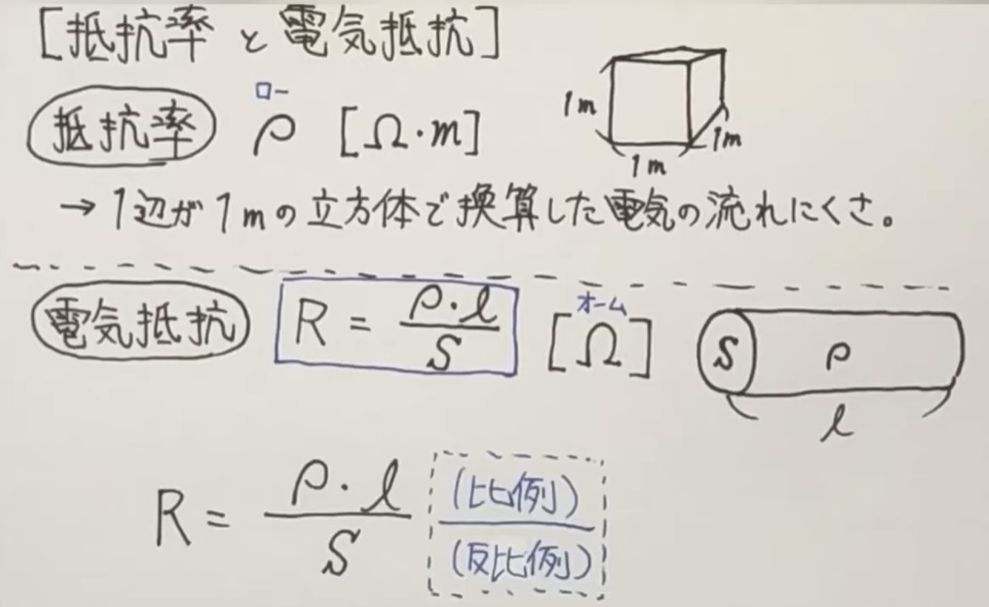 [抵抗率と電気抵抗]
抵抗率 ロー ρ [Ω・m]
1m
1m
1m
→ 1辺が1mの立方体で換算した電気の流れにくさ。
電気抵抗 R = ρ・l / S [Ω] オーム
S ρ
l
R = ρ・l / S (比例) / (反比例)